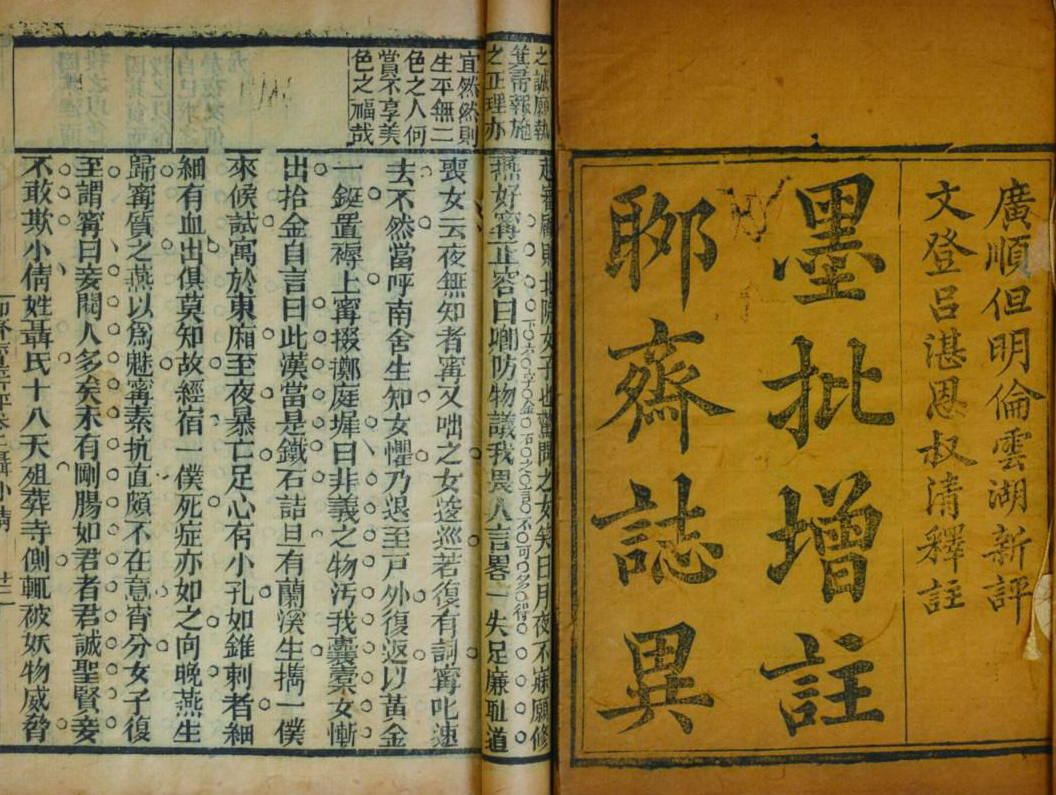 廣順但明倫雲湖新評
文登呂湛恩叔清釋註
墨批增註
聊齋誌異
之誠願執
箕帚報施
之正理亦
宜然然則
生平無二
色之人何
賞不享美
色之福哉
起審顧則北院女子也驚問之女笑曰月夜不寐願修
燕好寧正容曰卿防物議我畏人言畧一失足廉恥道
喪女云夜無知者寧又咄之女逡巡若復有詞寧叱速
去不然當呼南舍生知女懼乃退至戶外復返以黃金
一鋌置褥上寧掇擲庭墀曰非義之物污我囊橐女慚
出拾金自言曰此漢當是鐵石詰旦有蘭溪生攜一僕
來候試寓於東廂至夜暴亡足心有小孔如錐刺者細
細有血出俱莫知故經宿一僕死症亦如之向晚燕生
歸寧質之燕以爲魅寧素抗直頗不在意宵分女子復
至謂寧曰妾閱人多矣未有剛腸如君者君誠聖賢妾
不敢欺小倩姓聶氏十八夭殂葬寺側輒被妖物威脅